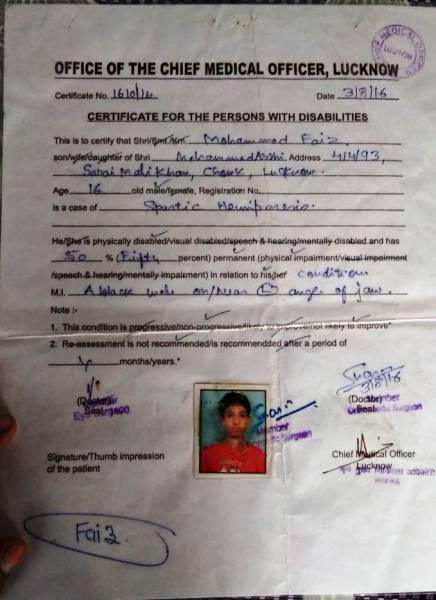 CHIEF MEDICAL OFFICER
LUCKNOW
OFFICE OF THE CHIEF MEDICAL OFFICER, LUCKNOW
Certificate No. 1610/16 Date 3/8/16
CERTIFICATE FOR THE PERSONS WITH DISABILITIES
This is to certify that Shri/Smt./Km. Mohammad Faiz
son/wife/daughter of Shri Address 4/4/93,
Sarai Mali Khan, Chowk, Lucknow.
Age 16 old male/female, Registration No.
is a case of Spastic Hemiparesis.
He/She is physically disabled/visual disabled/speech & hearing/mentally disabled and has
50 % (Fifty percent) permanent (physical impairment/visual impairment
/speech & hearing/mentally impairment) in relation to his/her condition
M.I. A black mole on/near angle of jaw.
Note :-
1. This condition is progressive/non-progressive/likely to improve/not likely to improve*
2. Re-assessment is not recommended/is recommendded after a period of
months/years.*
3/8/16
(Doctor) (Doctor)
Seal Seal
Eye Surgeon Member
Member Surgeon
Surgeon
Signature/Thumb impression Chief Medical Officer
of the patient Lucknow
Faiz